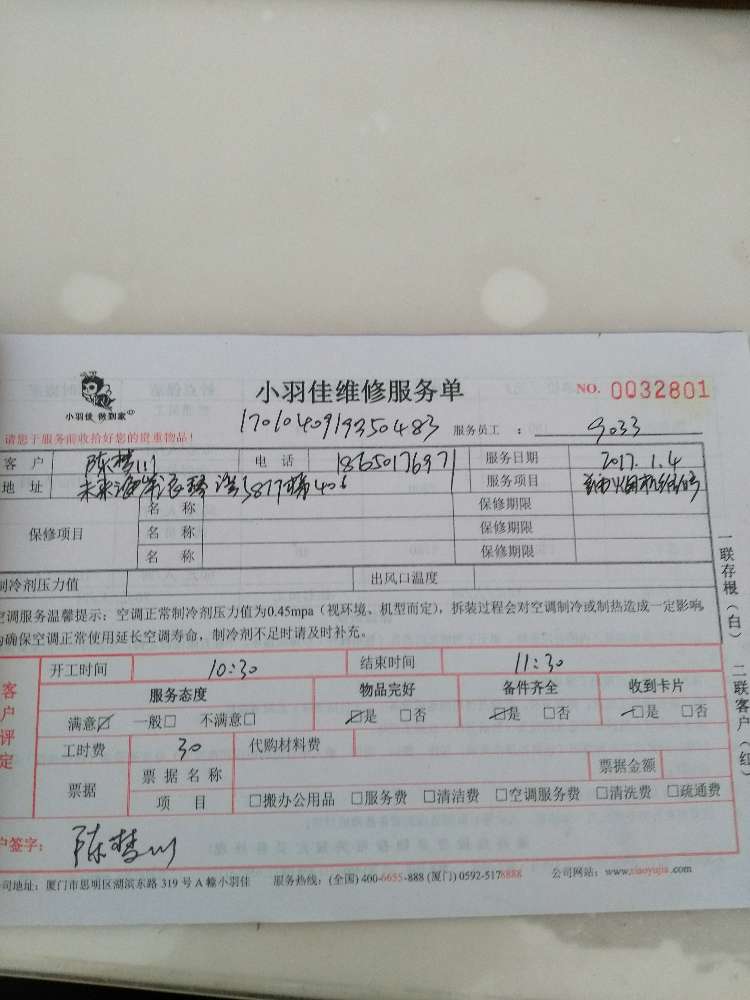 小羽佳 做到家
小羽佳维修服务单 NO. 0032801
请您于服务前收拾好您的贵重物品! 17010409193350483 服务员工 : 9033
客户 陈梦川 电话 18650176971 服务日期 2017.1.4
地址 未来海岸 服务项目
保修项目 名称 保修期限
名称 保修期限
名称 保修期限
制冷剂压力值 出风口温度
空调服务温馨提示:空调正常制冷剂压力值为0.45mpa(视环境、机型而定),拆装过程会对空调制冷或制热造成一定影响,
为确保空调正常使用延长空调寿命,制冷剂不足时请及时补充。
一联存根(白) 二联客户(红)
客户评定
开工时间 10:30 结束时间 11:30
服务态度 物品完好 备件齐全 收到卡片
满意☑ 一般□ 不满意□ ☑是 □否 ☑是 □否 ☑是 □否
工时费 30 代购材料费
票据 票据名称 票据金额
项目 □搬办公用品 □服务费 □清洁费 □空调服务费 □清洗费 □疏通费
户签字: 陈梦川
司地址:厦门市思明区湖滨东路 319 号 A 幢小羽佳 服务热线:(全国) 400-6655-888 (厦门) 0592-5178888 公司网站:www.xiaoyujia.com